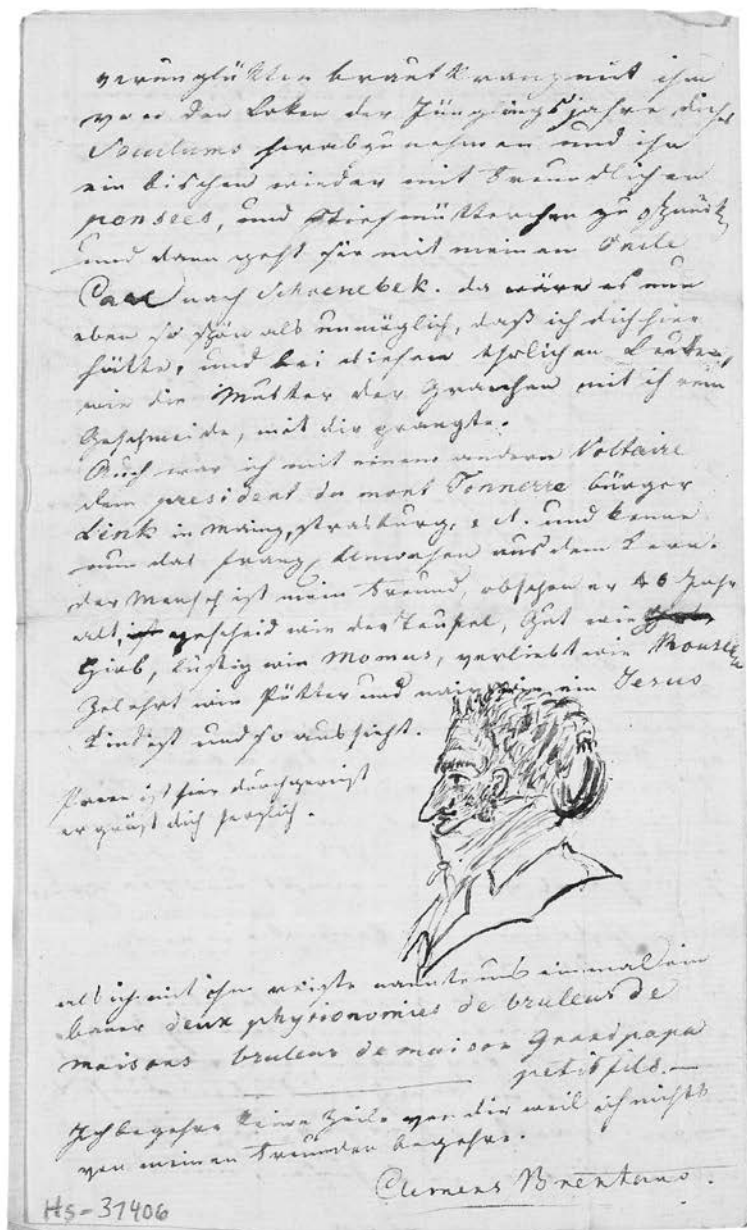 verunglükten brautkranz mit ihm
von den Loken der Jünglingsjahre dieses
Seculums herabzunehmen und ihn
ein bischen wieder mit Freundlichen
pensees, und Stiefmütterchen zu
und dann geht sie mit meinem Onkle
Carl nach Schoenebek. da wäre es nun
eben so schön als unmöglich, daß ich dich hier
hätte, und bei diesen ehrlichen Leuten,
wie die Mutter der Grachen mit ihrem
Geschmeide, mit dir prangte.
Auch war ich mit einem andern Voltaire
dem president du mont Tonnerre bürger
Link in Mainz, Strasburg, und kenne
nun das franz, Unwesen aus dem Kern.
der Mensch ist mein Freund, obschon er 40 Jahr
alt, ist gescheid wie der Teufel, Gut wie
Hiob, lustig wie Momus, verliebt wie Roussea
Gelehrt wie Pütter und naiv wie ein Jesus
Kind ist und so aussieht.
ist hier durchgereist
er grüst dich herzlich.
als ich mit ihm reiste nannte uns einmal ein
bauer deux physionomies de bruleurs de
maisons. bruleur de maison Grandpapa
petitfils.—
Ich begehre keine Zeile von dir weil ich nichts
von meinen Freunden begehre.
Clemens Brentano.
Hs-31406